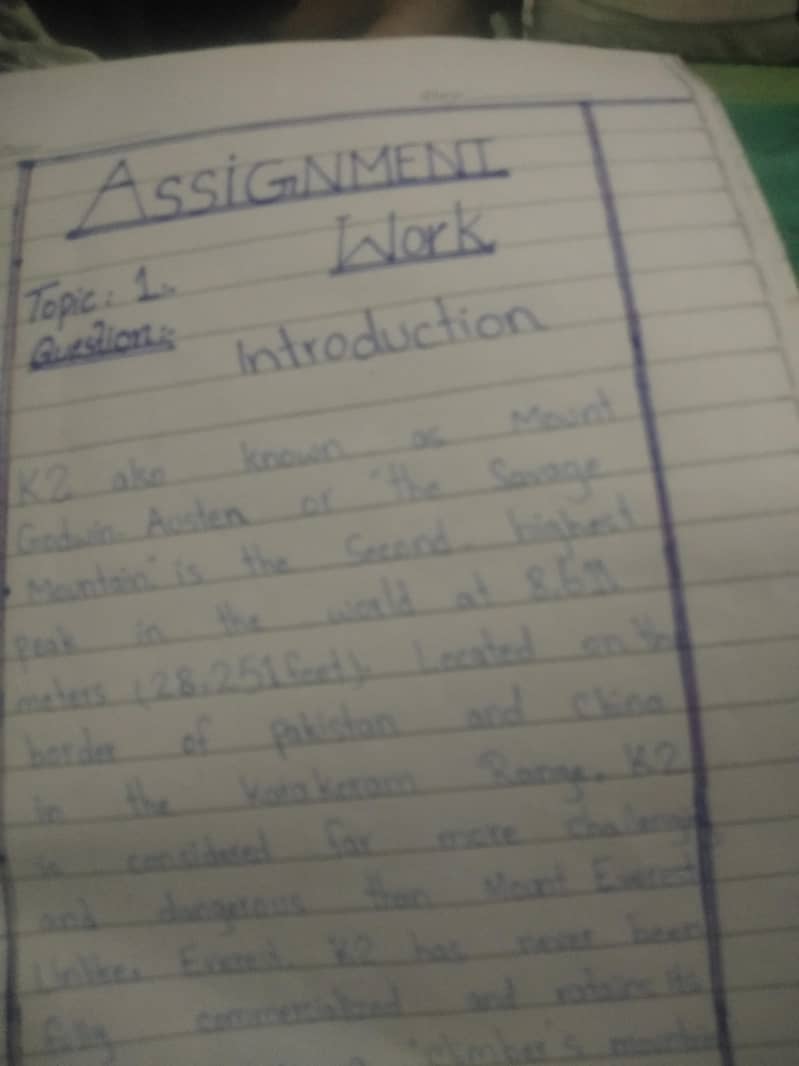 ASSiGNMENT
Work
Topic: 1.
Question:
Introduction
K2 also known as Mount
Godwin-Austen or "the Savage
Mountain" is the Second highest
peak in the world at 8,611
meters (28,251 feet). Located on the
border of pakistan and China
in the Karakoram Range, K2
is considered far more challenging
and dangerous than Mount Everest
Unlike Everest, K2 has never been
fully commercialized and retains its
"climber's mountain